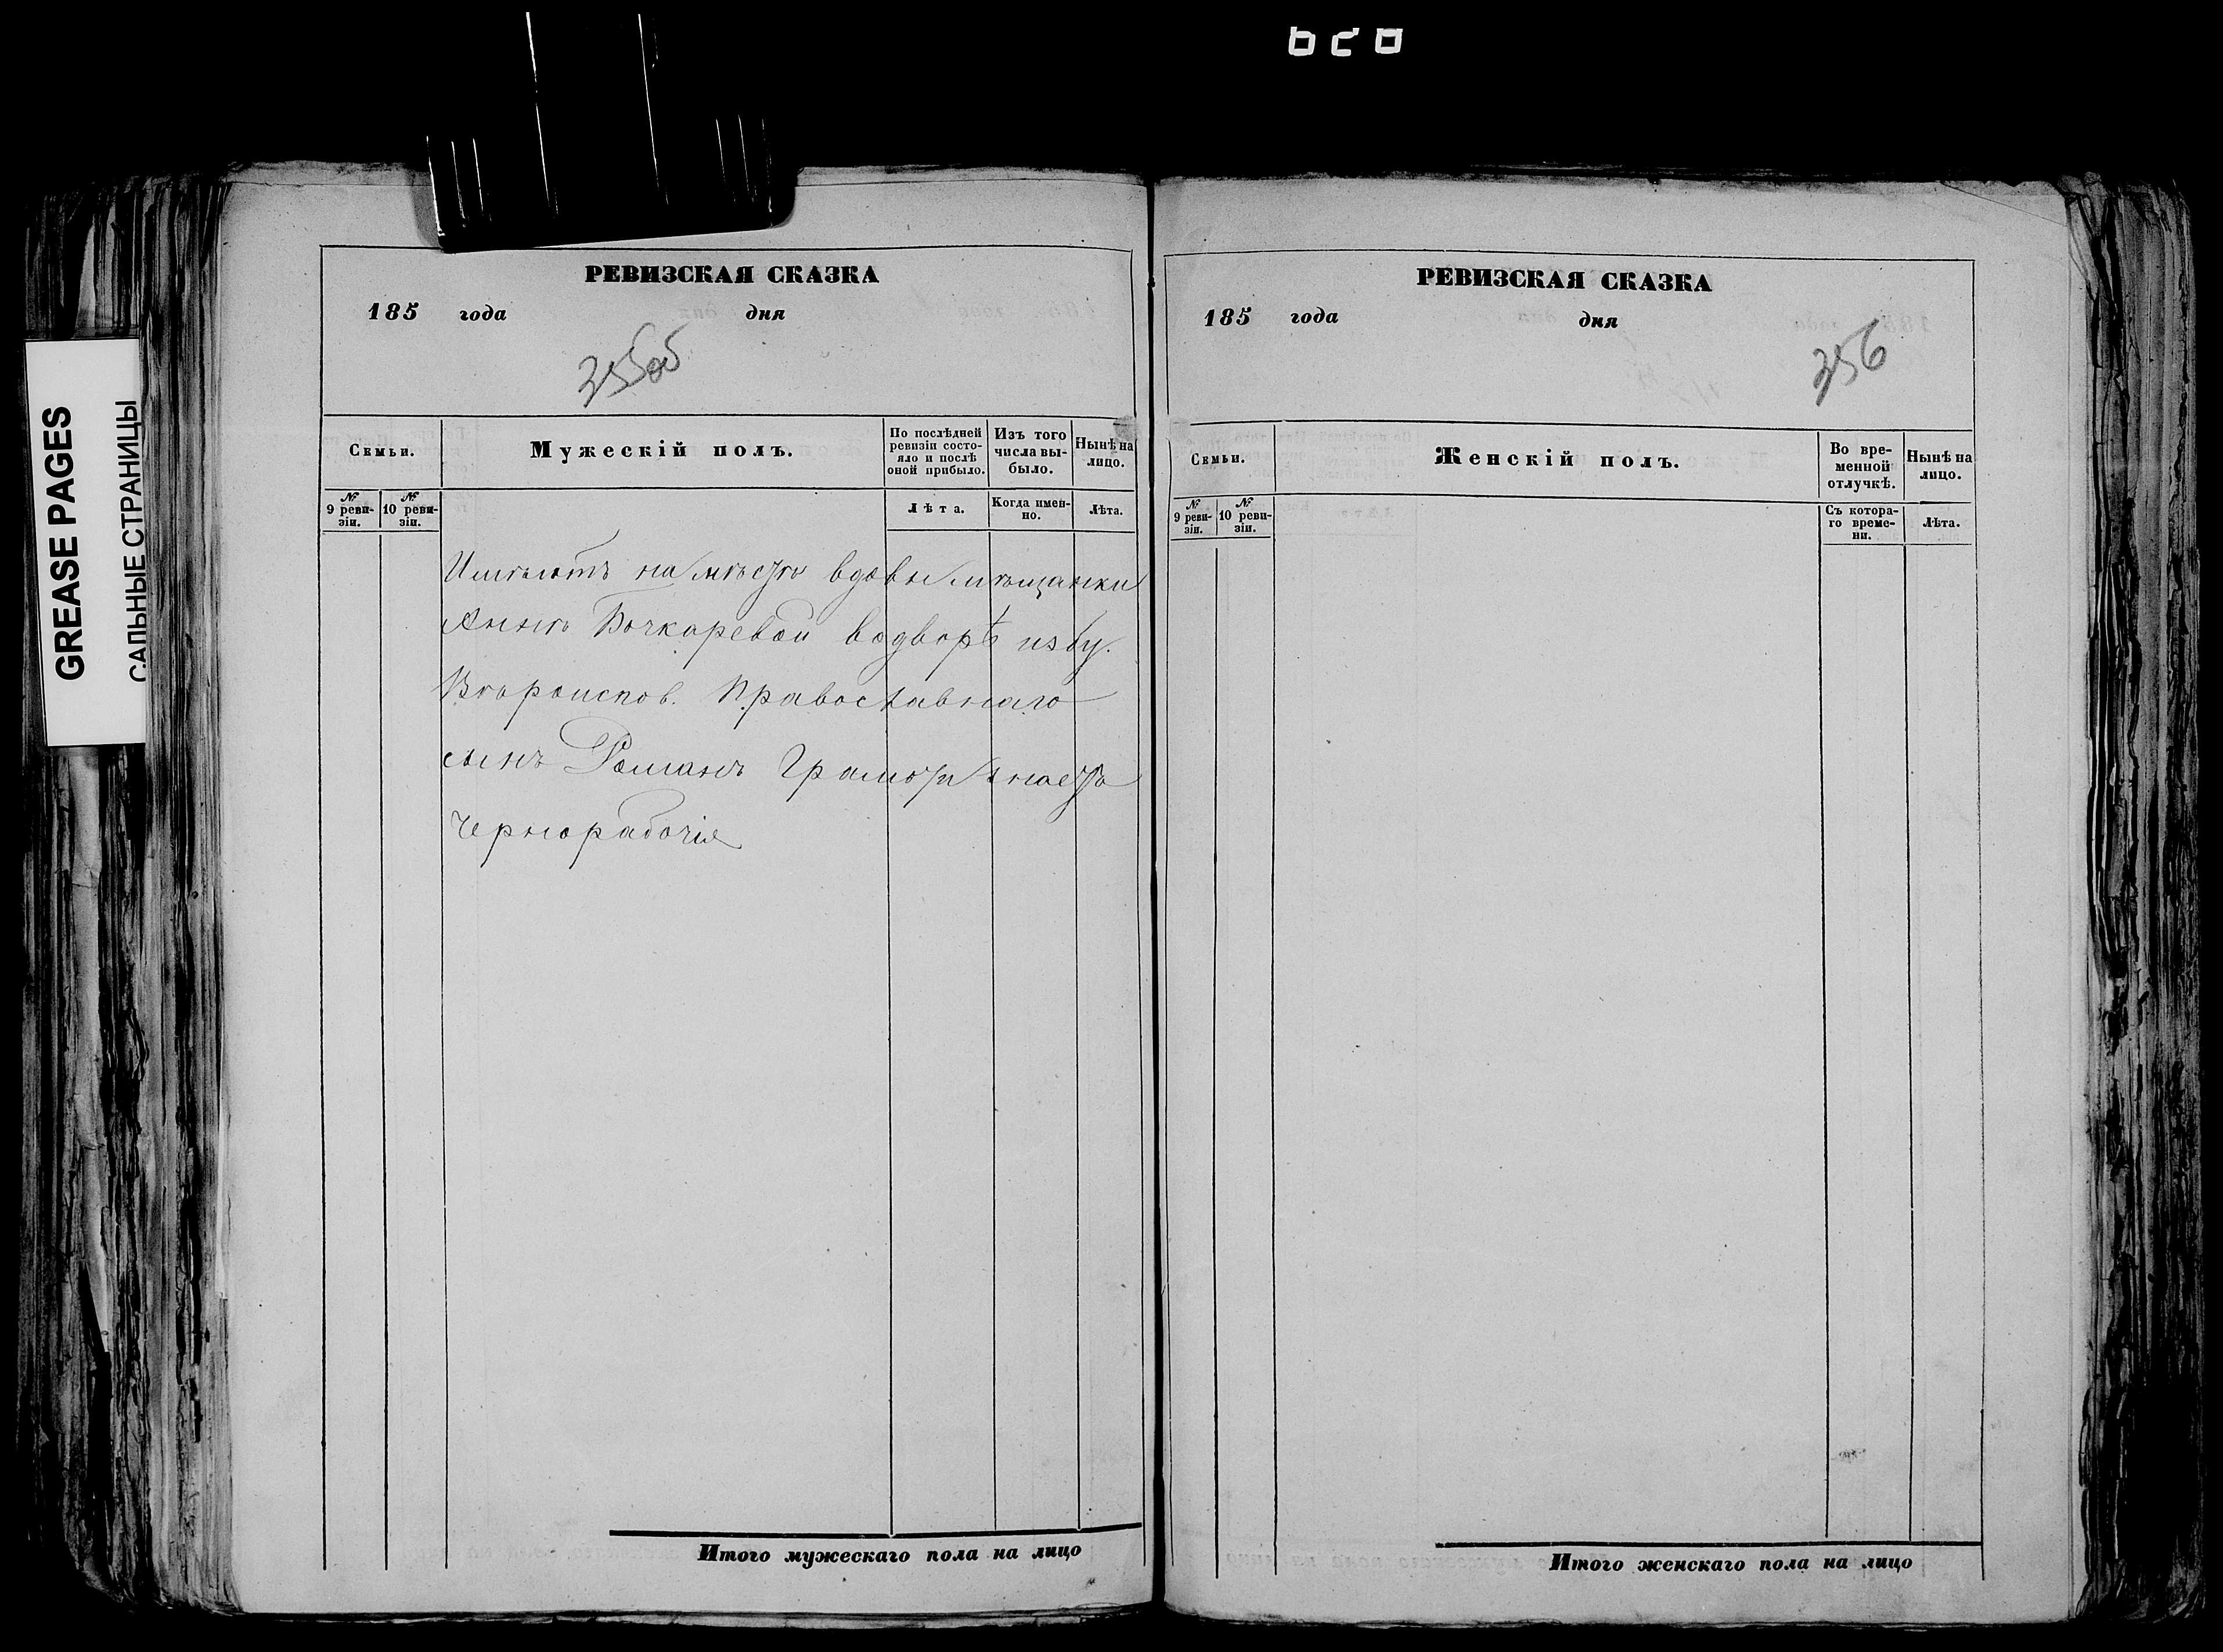 GREASE PAGES
САЛЬНЫЕ СТРАНИЦЫ
РЕВИЗСКАЯ СКАЗКА
185 года дня
355об
Семьи.
Мужескій полъ.
По послѣдней ревизіи состо-
яло и послѣ
оной прибыло.
Изъ того
числа вы-
было.
Нынѣ на
лицо.
№
9 реви-
зіи.
№
10 реви-
зіи.
Лѣта.
Когда имен-
но.
Лѣта.
Имѣютъ на мѣстѣ вдовы мѣщанки
Анны Бочкаревой водворѣ избу.
Вѣроиспов. Православнаго
сынъ Романъ Грамоти знаетъ
Чернорабочія
Итого мужескаго пола на лицо
РЕВИЗСКАЯ СКАЗКА
185 года дня
356
Семьи.
Женскій полъ.
Во вре-
менной
отлучкѣ.
Нынѣ на
лицо.
№
9 реви-
зіи.
№
10 реви-
зіи.
Съ котора-
го време-
ни.
Лѣта.
Итого женскаго пола на лицо